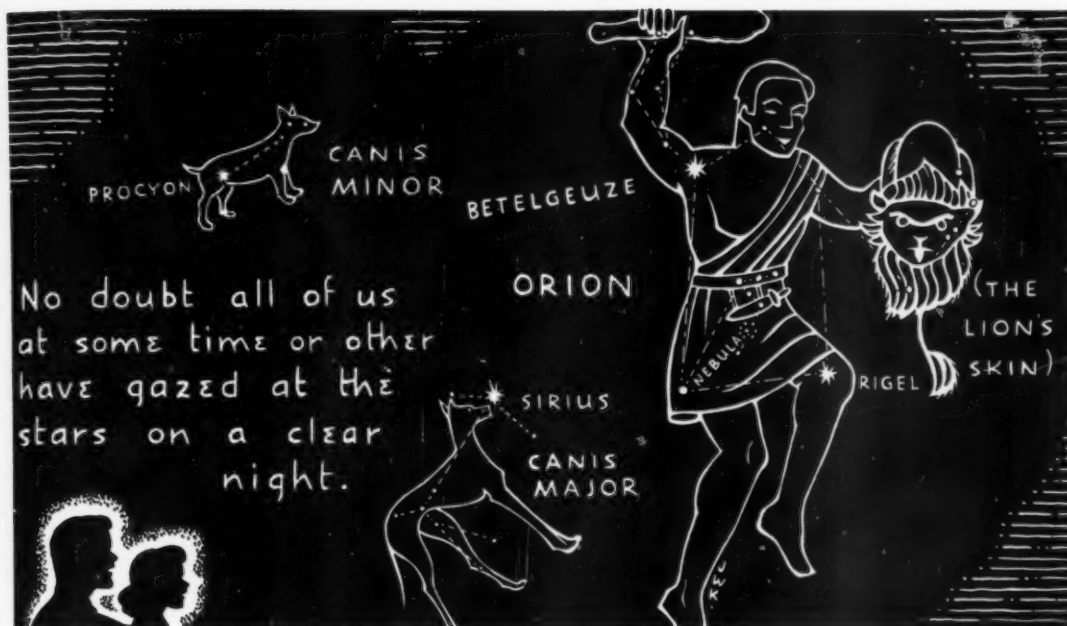 PROCYON
CANIS
MINOR
BETELGEUZE
ORION
No doubt all of us
at some time or other
have gazed at the
stars on a clear
night.
NEBULA
RIGEL
(THE
LION'S
SKIN)
SIRIUS
CANIS
MAJOR